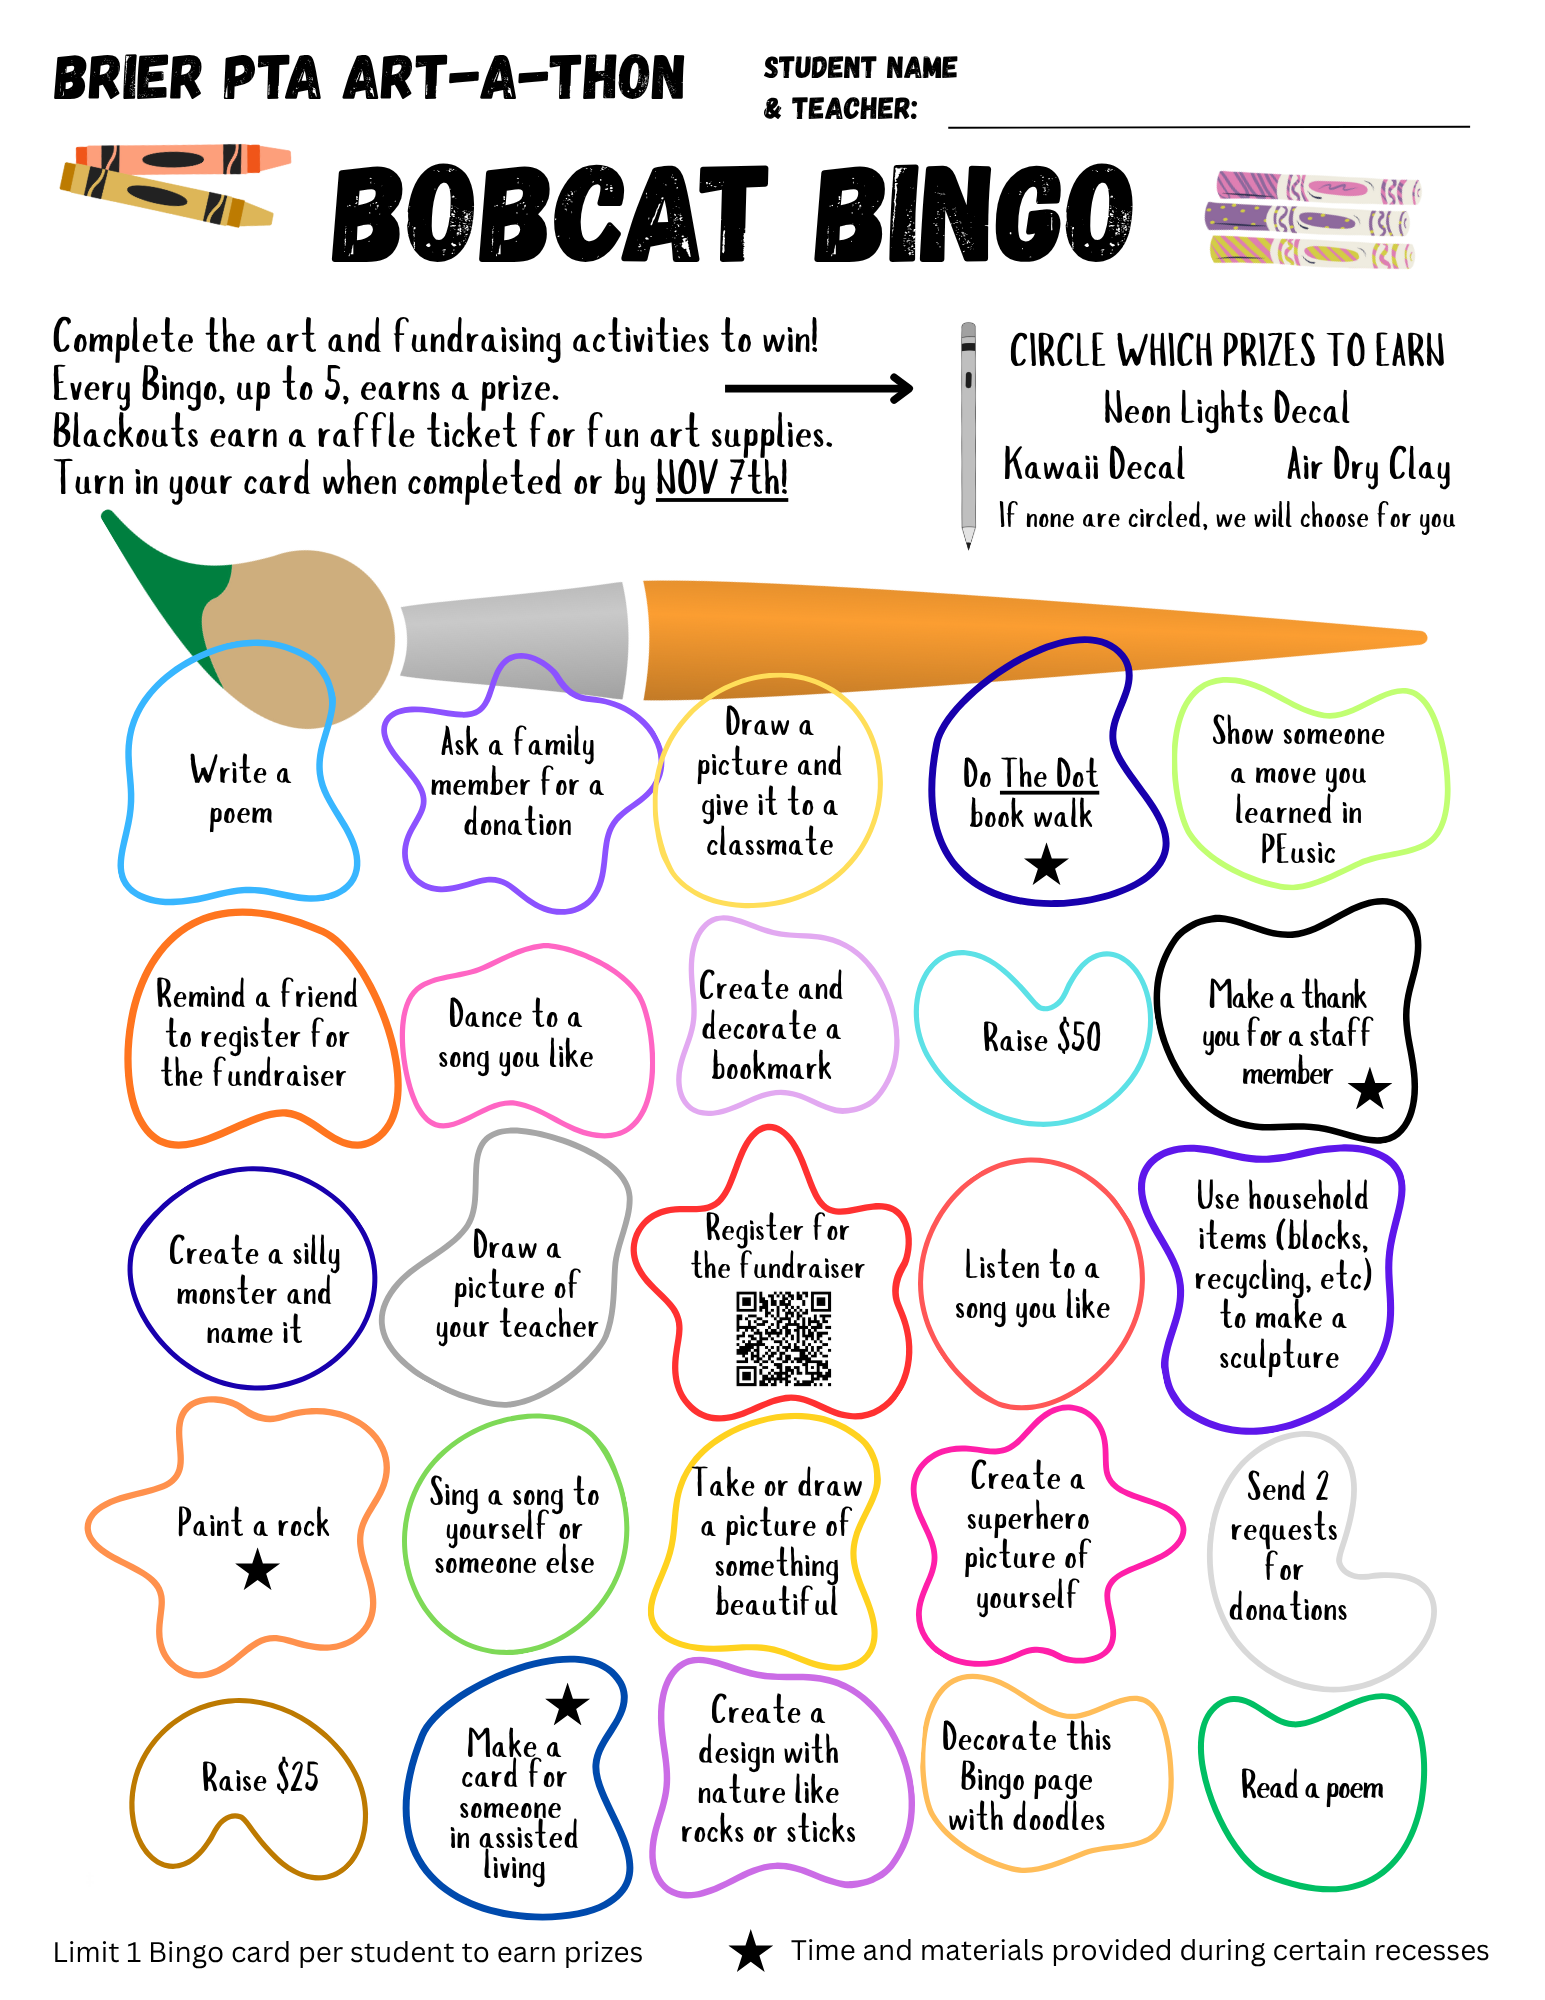 BRIER PTA ART-A-THON
STUDENT NAME
& TEACHER:
BOBCAT BINGO
Complete the art and fundraising activities to win!
Every Bingo, up to 5, earns a prize.
Blackouts earn a raffle ticket for fun art supplies.
Turn in your card when completed or by NOV 7th!
CIRCLE WHICH PRIZES TO EARN
Neon Lights Decal
Kawaii Decal Air Dry Clay
If none are circled, we will choose for you
Write a
poem
Ask a family
member for a
donation
Draw a
picture and
give it to a
classmate
Do The Dot
book walk
Show someone
a move you
learned in
PEusic
Remind a friend
to register for
the fundraiser
Dance to a
song you like
Create and
decorate a
bookmark
Raise $50
Make a thank
you for a staff
member
Create a silly
monster and
name it
Draw a
picture of
your teacher
Register for
the fundraiser
Listen to a
song you like
Use household
items (blocks,
recycling, etc)
to make a
sculpture
Paint a rock
Sing a song to
yourself or
someone else
Take or draw
a picture of
something
beautiful
Create a
superhero
picture of
yourself
Send 2
requests
for
donations
Raise $25
Make a
card for
someone
in assisted
living
Create a
design with
nature like
rocks or sticks
Decorate this
Bingo page
with doodles
Read a poem
Limit 1 Bingo card per student to earn prizes
Time and materials provided during certain recesses